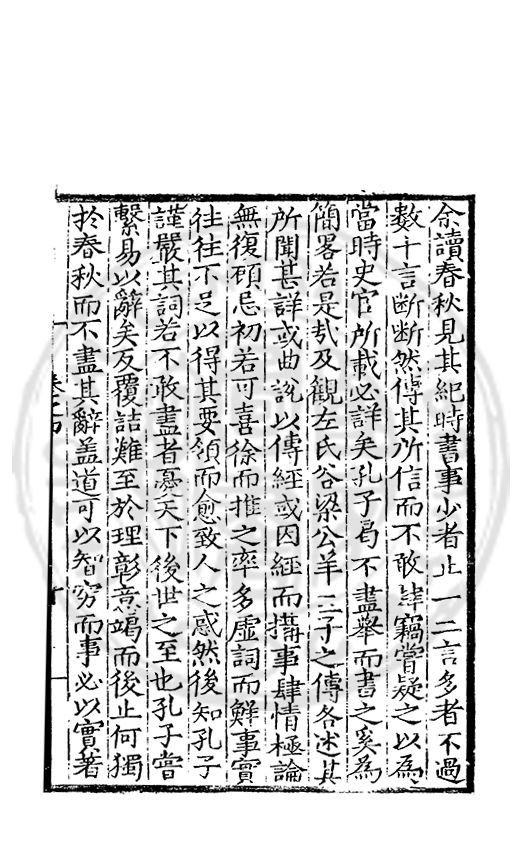 余讀春秋見其紀時書事少者止一二言多者不過
數千言断断然傳其所信而不敢肆竊嘗疑之以為
當時史官所載必詳矣孔子曷不盡舉而書之奚為
簡畧若是㢤及觀左氏谷梁公羊三子之傳各述其
所聞甚詳或曲説以傳經或因經而摭事肆情極論
無復顧忌初若可喜徐而推之率多虛詞而鮮事實
往往不足以得其要領而愈致人之惑然後知孔子
謹嚴其詞若不敢盡者憂天下後世之至也孔子嘗
繫易以辭矣反覆詰難至於理彰意竭而後止何獨
於春秋而不盡其辭盖道可以智窮而事必以實著